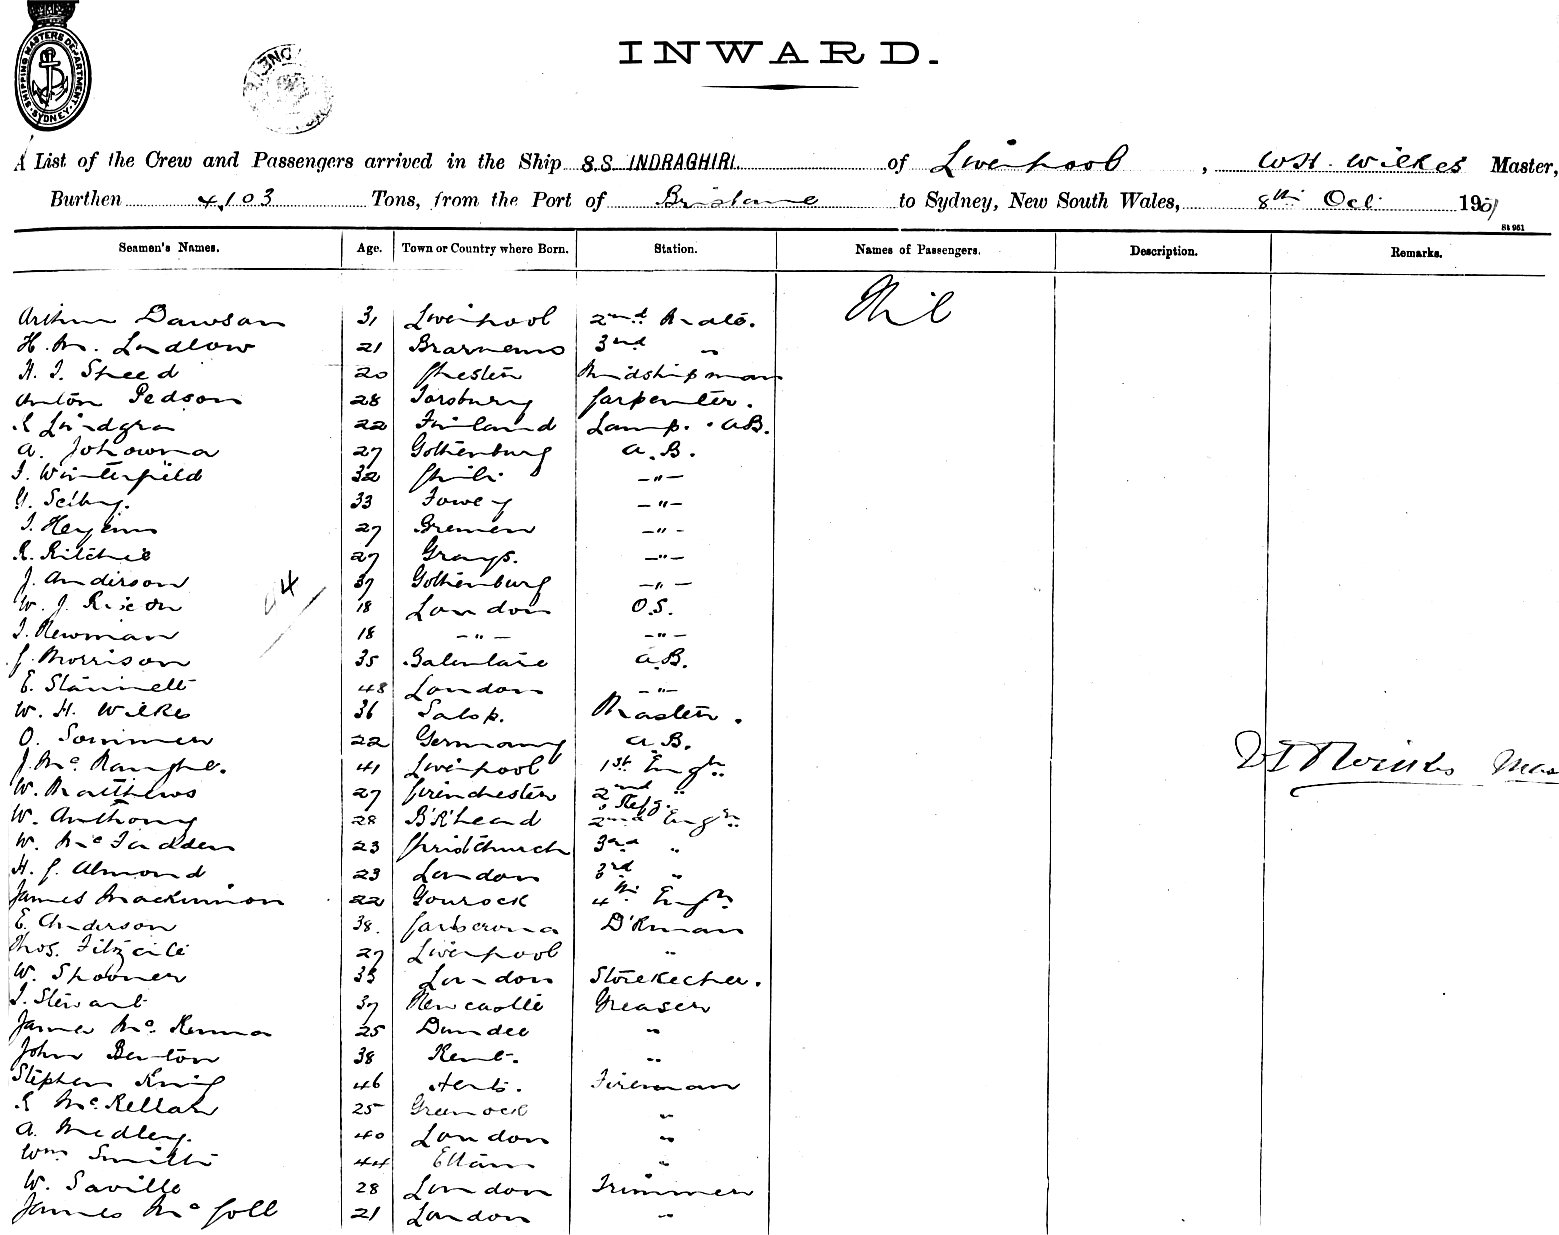 SHIPPING MASTERS DEPARTMENT, SYDNEY
INWARD.
A List of the Crew and Passengers arrived in the Ship S.S INDRAGHIRI. of Liverpool, W.H. Wilkes Master,
Burthen 4,103 Tons, from the Port of Brisbane to Sydney, New South Wales, 8th Oct. 1901
St 961
Seamen's Names. Age. Town or Country where Born. Station. Names of Passengers. Description. Remarks.
Nil
Arthur Dawson 31 Liverpool 2nd Mate.
H. M. Ludlow 21 3rd "
Speed 20 Chester Midshipman
Anton Pedson 28 Carpenter.
22 Finland Lamp. AB.
A. 27 Gothenburg A.B.
Winterfield 32 Chili —"—
G. Selby. 33 Fowey —"—
27 Bremen —"—
R. Ritchie 27 Grays. —"—
J. Anderson 37 Gothenburg —"—
4
W. J. 18 London O.S.
Newman 18 —"— —"—
Morrison 35 A.B.
E. 48 London —"—
W. H. Wilkes 36 Salop. Master.
O. Sommer 22 Germany A.B.
J. 41 Liverpool 1st Engr.
W. Matthews 27 2nd "
Refg.
W. Anthony 28 B'K'head 2nd Engr.
W. McFadden 23 Christchurch 3rd "
H. J. Almond 23 London 3rd "
James Mackinnon 22 Gourock 4th Engr
E. Anderson 38. D'Kman
Thos. 27 Liverpool "
W. Spooner 33 London Storekeeper.
Stewart 37 Newcastle Greaser
James McKenna 25 Dundee "
John Benton 38 Kent. "
Stephen King 46 Herts. Fireman
McKellar 25 Greenock "
A. Medley. 40 London "
Wm Smith 44 Eltham "
W. Saville 28 London Trimmer
James McColl 21 London "